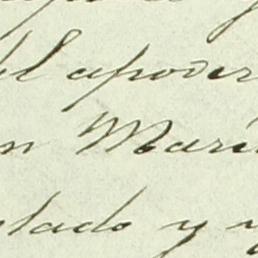 el apoder
n Marí
lado y